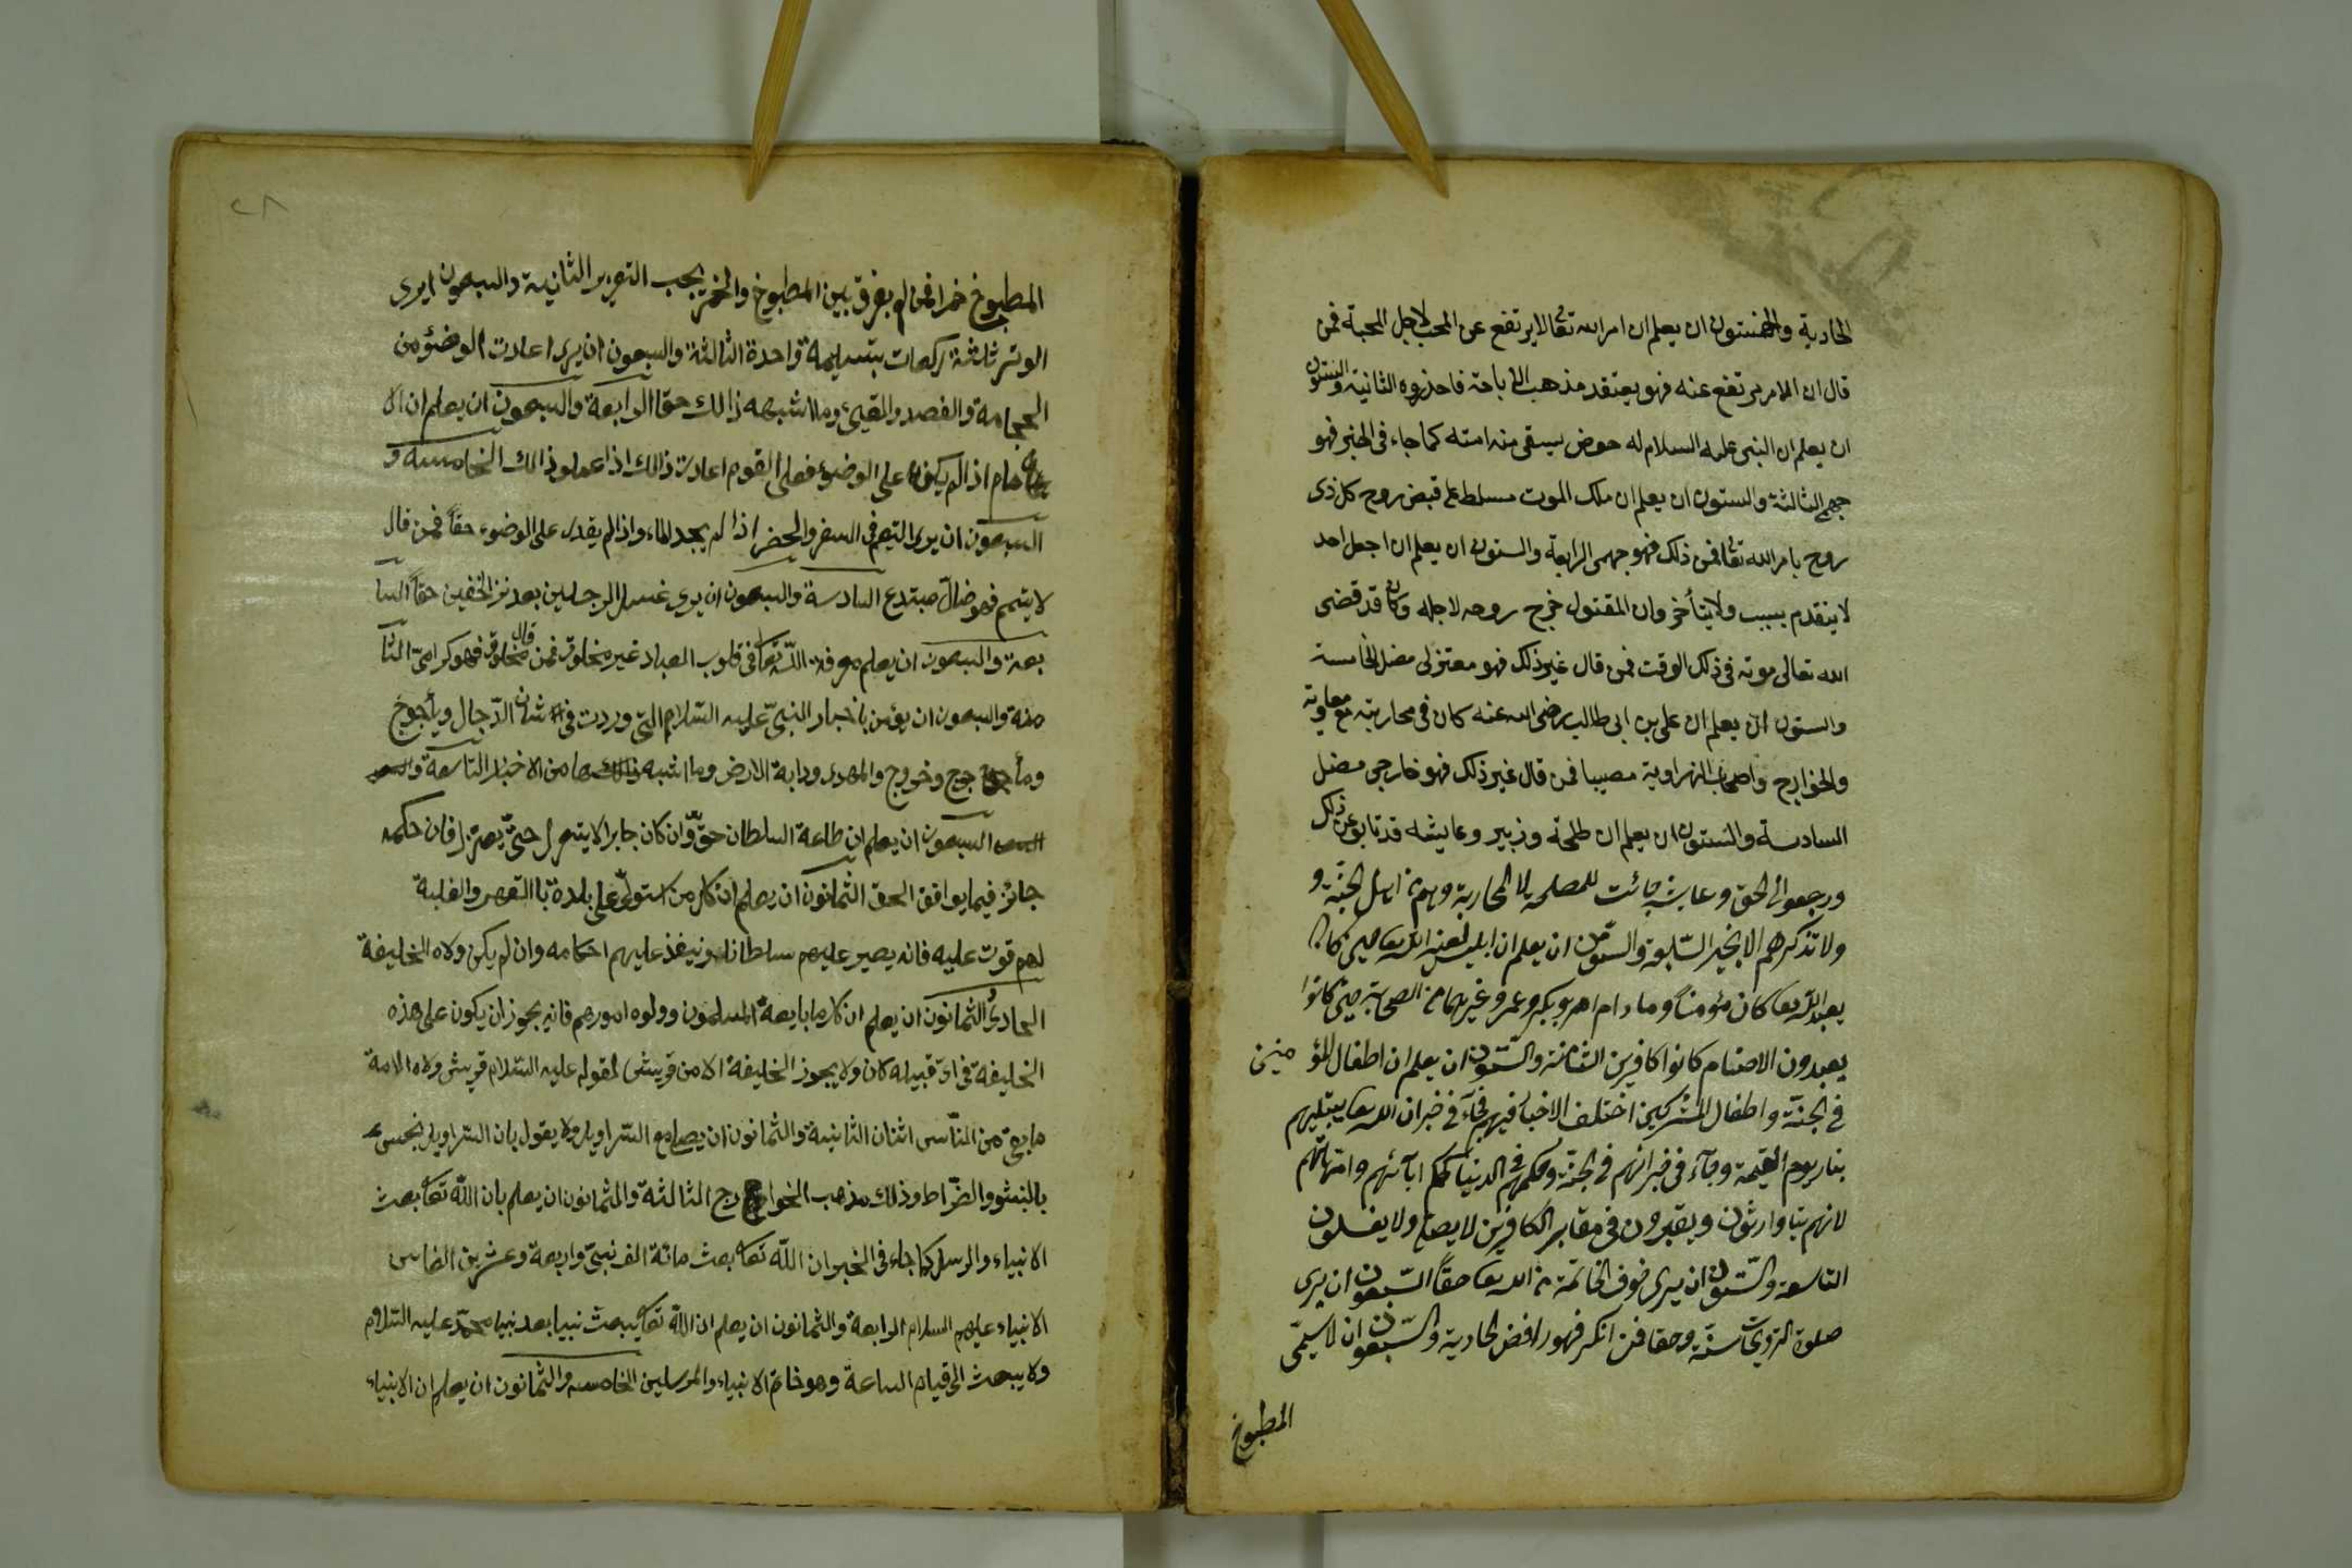 الحادية والخمستون ان يعلم ان امر الله تعالى لا يرتفع عن المحب لاجل المحبة فمن
قال ان الامر يرتفع عنه فهو يعتقد مذهب الاباحة فاحذروه الثانية والستون
ان يعلم ان النبى عليه السلام له حوض يسقى منه امته كما جاء فى الخبر فهو
جهمى الثالثة والستون ان يعلم ان ملك الموت مسلط على قبض روح كل ذى
روح بامر الله تعالى فمن ذلك فهو جهمى الرابعة والستون ان يعلم ان اجل احد
لا يتقدم بسبب ولا يتأخر وان المقتول خرج روحه لاجله وكان قد قضى
الله تعالى موته فى ذلك الوقت فمن قال غير ذلك فهو معتزلى مضل الخامسة
والستون ان يعلم ان على بن ابى طالب رضى الله عنه كان فى محاربته مع معاوية
والخوارج واصحاب النهراوية مصيبا فمن قال غير ذلك فهو خارجى مضل
السادسة والستون ان يعلم ان طلحة وزبير وعايشه قد تابو عن ذلك
ورجعوا الى الحق وعايشه جائت للمصلحة لا لمحاربة وهم من اهل الجنة و
ولا تذكرهم الا بخير السابعة والستون ان يعلم ان ابليس لعنه الله تعا حين كان
يعبد الله تعا كان مؤمناً وما دام ابو بكر وعمر وغيرهما من الصحابة حين كانوا
يعبدون الاصنام كانوا كافرين الثامنة والستون ان يعلم ان اطفال المؤ منين
فى الجنة واطفال المشركين اختلف الاخبار فيهم فجآء فى خبر ان الله تعا يبتليهم
بنار يوم القيمة وجآء فى خبر انهم فى الجنة وحكمهم فى الدنيا كحكم ابآئهم وامهاتهم
لانهم يتاوارثون ويقبرون فى مقابر الكافرين لا يصلى ولا يغسلون
التاسعة والستون ان يرى خوف الخاتمة من الله تعا حقاً السبعون ان يرى
صلوة التروايح سنة وحقا فمن انكر فهو رافض الحادية والسبعون ان لا يسمى
المطبوخ
٢٨
المطبوخ خمرا فمن لم يفرق بين المطبوخ والخمر يجب التعزير الثانية والسبعون ان يرى
الوتر ثلثة ركعات بتسليمة واحدة الثالثة والسبعون ان يرى اعادت الوضؤ من
الحجامة والفصد والقيئ وما اشبه ذالك حقا الرابعة والسبعون ان يعلم ان الا
مام اذا لم يكن على الوضوء فعلى القوم اعادت ذالك اذا عملو ذالك الخامسه و
السبعون ان يرى التيمم فى السفر والحضر اذا لم يجد الماء واذا لم يقدر على الوضوء حقاً فمن قال
لا يتيمم فهو ضال مبتدع السادسة والسبعون ان يرى غسل الرجلين بعد نزع الخفين حقاً السا
بعة والسبعون ان يعلم معرفة الله تعا فى قلوب العباد غير مخلوق فمن قال مخلوق فهو كرامى الثا
منة والسبعون ان يؤمن باخبار النبى عليه السلام التى وردت فى شان الدجال ويأجوج
ومأ جوج وخروج والمهدى ودابة الارض وما اشبه ها من الاخبار التاسعة و
السبعون ان يعلم ان طاعة السلطان حق وان كان جابرا لا ينعزل حتى يعزل فان حكمه
جائز فيما يوافق الحق الثمانون ان يعلم ان كل من استولى على بلدة باالقهر والغلبة
لهم قوت عليه فانه يصير عليهم سلطانا وينفذ عليهم احكامه وان لم يكن ولاه الخليفة
الحادى والثمانون ان يعلم ان كل ما بايعه المسلمون وولوه امورهم فانه يجوز ان يكون على هذه
الخليفة فى اى قبيله كان ولا يجوز الخليفة الا من قريش لقوله عليه السلام قريش ولاه الامة
ما بقى من الناس اثنان الثانية والثمانون ان يصلى مع السراويل ولا يقول بان السراويل نجس
بالنفشو والضراط وذلك مذهب الخوارج الثالثة والثمانون ان يعلم بان الله تعا بعث
الانبياء والرسل كما جاء فى الخبر ان الله تعا بعث مائة الف نبى واربعة وعشرين الفا من
الانبياء عليهم السلام الرابعة والثمانون ان يعلم ان الله تعا يبعث نبيا بعد نبينا محمد عليه السلام
ولا يبعث الى قيام الساعة وهو خاتم الانبياء والمرسلين الخامسه والثمانون ان يعلم ان الانبياء